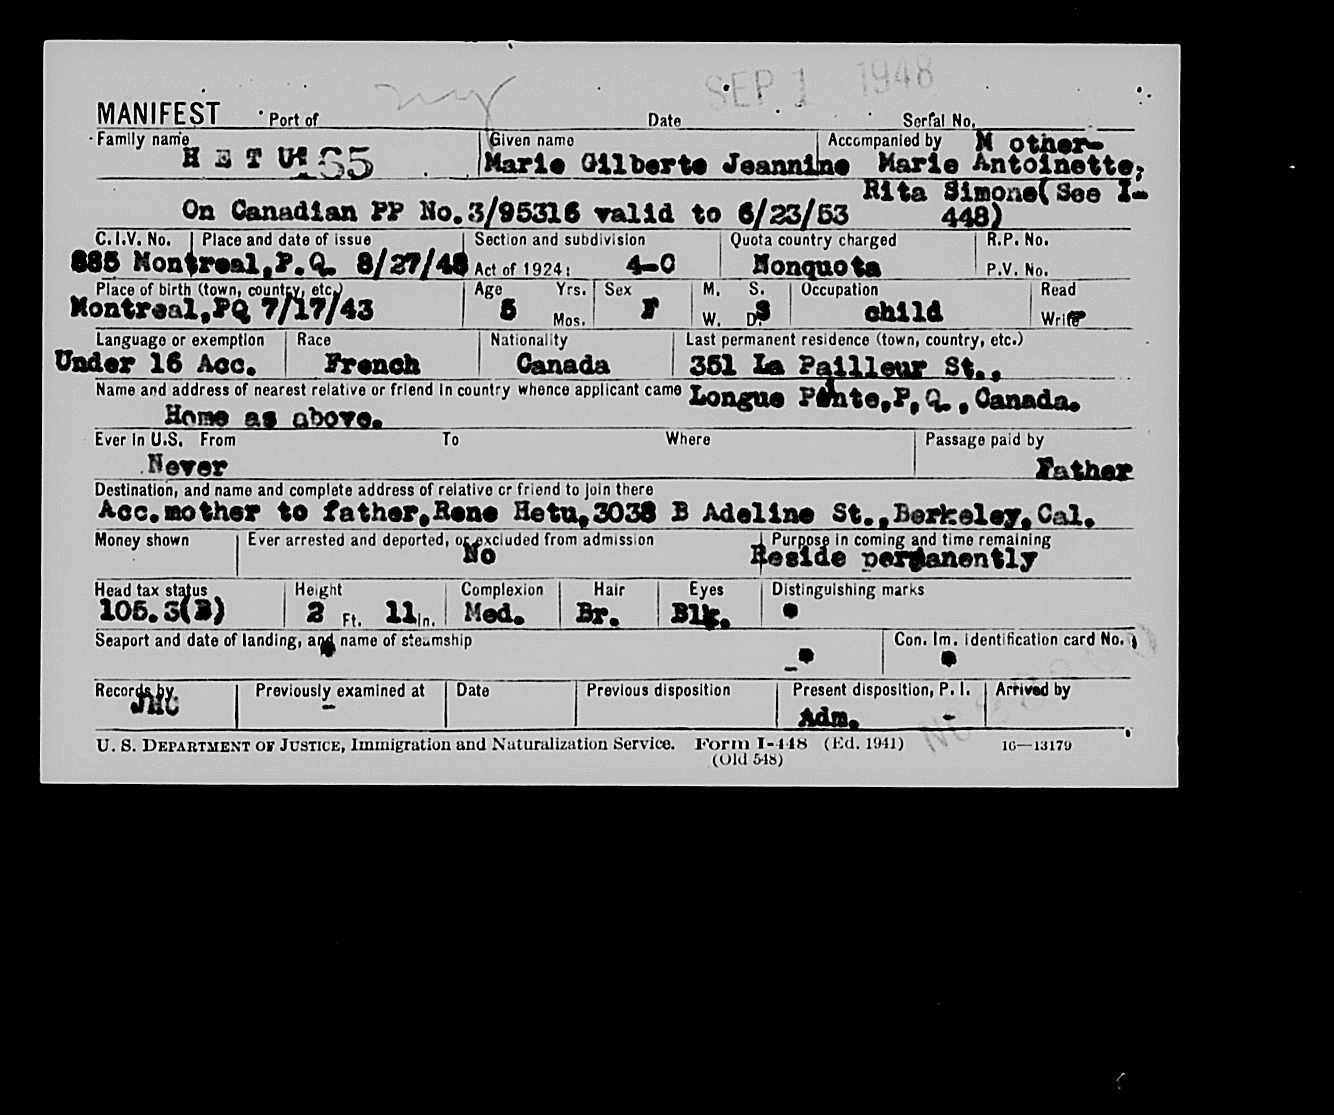 SEP 1 1948
MANIFEST Port of Date Serial No.
Family name Given name Accompanied by M other-
H E T U 165 Marie Gilberte Jeannine Marie Antoinette,
Rita Simone(See I-
On Canadian PP No.3/95316 valid to 6/23/53 448)
C.I.V. No. Place and date of issue Section and subdivision Quota country charged R.P. No.
885 Montreal,P.Q. 8/27/48 Act of 1924: 4-C Nonquota P.V. No.
Place of birth (town, country, etc.) Age Yrs. Sex M. S. Occupation Read
Montreal,PQ 7/17/43 5 Mos. F W. D. S child Write
Language or exemption Race Nationality Last permanent residence (town, country, etc.)
Under 16 Acc. French Canada 351 La Pailleur St.,
Name and address of nearest relative or friend in country whence applicant came Longue Pointe,P.Q.,Canada.
Home as above.
Ever in U.S. From To Where Passage paid by
Never Father
Destination, and name and complete address of relative or friend to join there
Acc.mother to father,Rene Hetu,3038 B Adeline St.,Berkeley,Cal.
Money shown Ever arrested and deported, or excluded from admission Purpose in coming and time remaining
No Reside permanently
Head tax status Height Complexion Hair Eyes Distinguishing marks
105.3(B) 2 Ft. 11 In. Med. Br. Blk.
Seaport and date of landing, and name of steamship Con. Im. identification card No.
Records by Previously examined at Date Previous disposition Present disposition, P. I. Arrived by
JHC - Adm. -
U. S. DEPARTMENT OF JUSTICE, Immigration and Naturalization Service. Form I-448 (Ed. 1941) 16—13179
(Old 548)